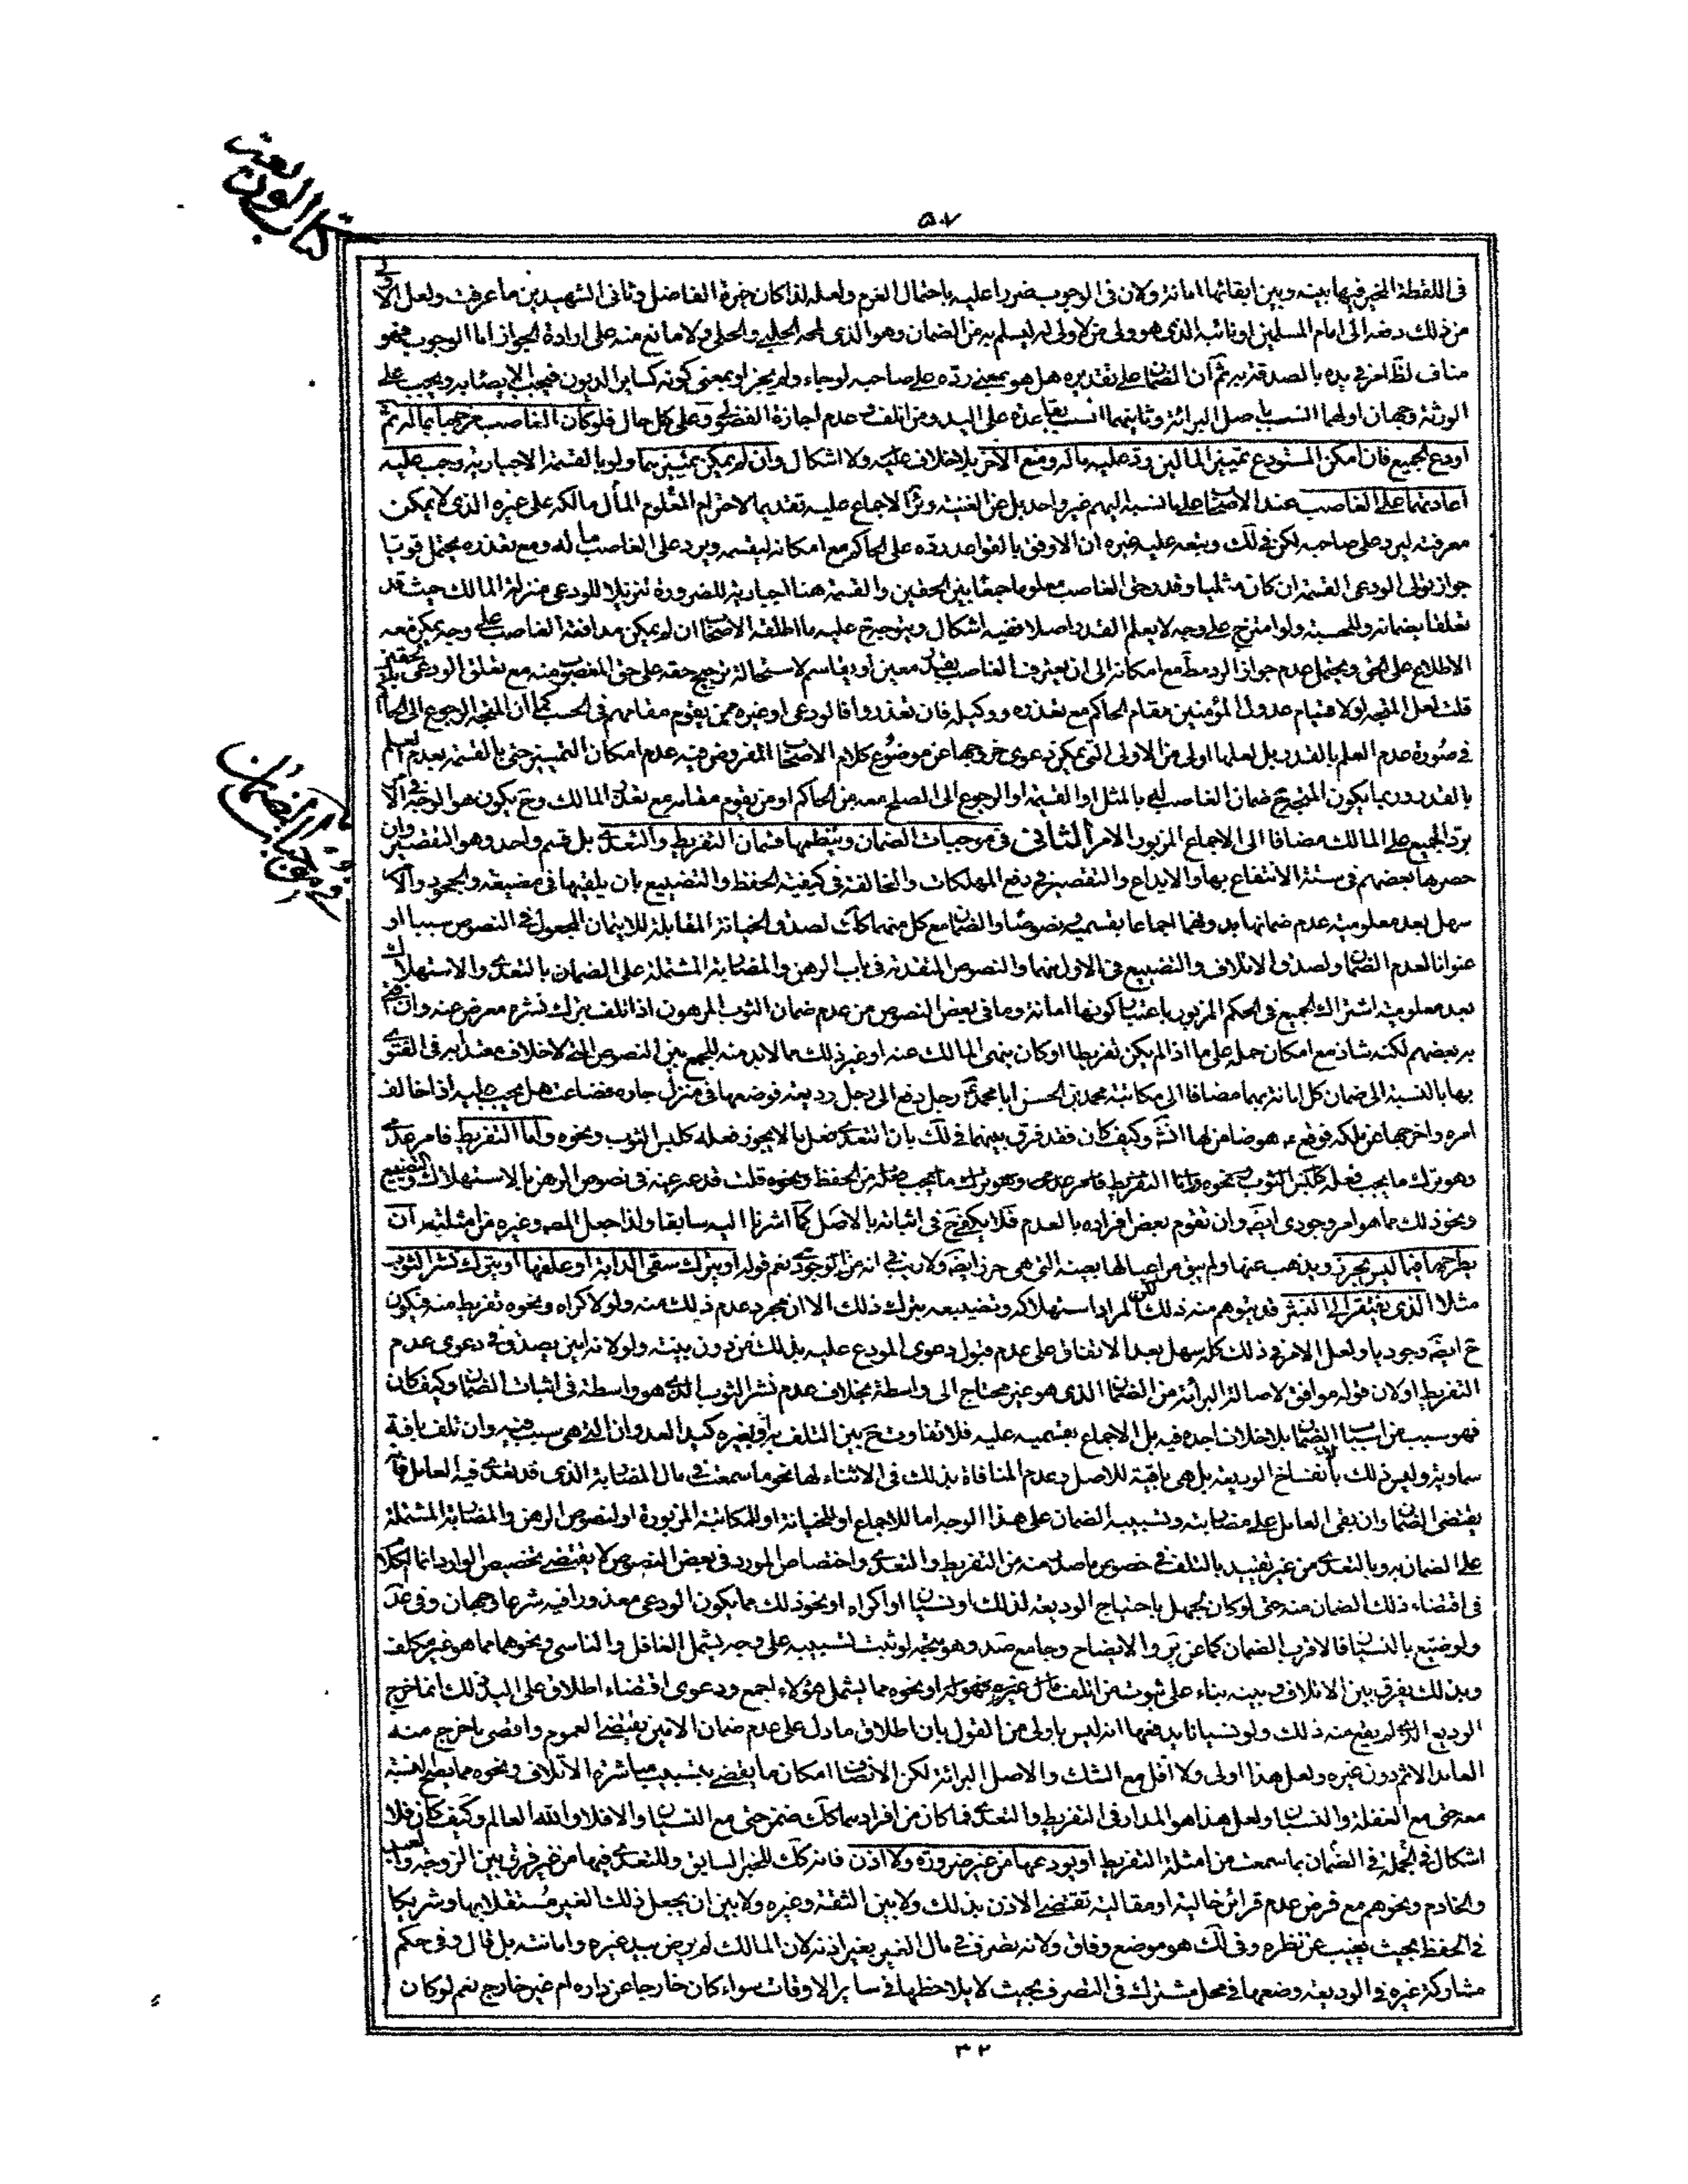 كتاب الوديعة
٥٠٧
فى اللقطة المخير فيها بينه وبين ابقائها امانة ولان فى الوجوب ضررا عليه باحتمال الغرم ولعله لذا كان خيرة الفاضل وثانى الشهيدين ما عرفت ولعل الاولى
من ذلك دفعه الى امام المسلمين او نائبه الذى هو ولى من لا ولى له ليسلم به من الضمان وهو الذى لمحه الحلبى والحلى ولا مانع منه على ارادة الجواز اما الوجوب فهو
مناف لظ الخبر فى بدء بالصدقة به ثم ان الضمان على تقديره هل هو بمعنى رده على صاحبه لو جاء ولم يجز او بمعنى كونه كساير الديون فيجب الايصاء به ويجب على
الورثة وجهان اولهما انسب باصل البرائة وثانيهما انسب بقاعدة على اليد ومن اتلف وعدم اجازة الفضولى وعلى كل حال فلو كان الغاصب مزجها بماله ثم
اودع الجميع فان امكن المستودع تمييز المالين رد عليه ماله ومنع الاخر بلا خلاف عليه ولا اشكال وان لم يمكن تمييزهما ولو بالقسمة الاجبارية وجب عليه
اعادتهما على الغاصب عند الاصحاب على ما نسبه اليهم غير واحد بل عن الغنية وئر الاجماع عليه تقديما لاحترام المعلوم المال مالكه على غيره الذى لا يمكن
معرفته ليرد على صاحبه لكن فى لك وتبعه عليه غيره ان الاوفق بالقواعد رده على الحاكم مع امكانه ليقسمه ويرد على الغاصب ماله ومع تعذره يحتمل قويا
جواز تولى الودعى القسمة ان كان مثليا وقدر حق الغاصب معلوما جمعا بين الحقين والقسمة هنا اجبارية للضرورة تنزيلا للودعى منزلة المالك حيث قد
تعلقا بضمانه وللحسبة ولو امتزج على وجه لا يعلم القدر اصلا ففيه اشكال ويتوجه ح عليه ما اطلقه الاصحاب ان لم يمكن مدافعة الغاصب على وجه يمكن معه
الاطلاع على الحق ويحتمل عدم جواز الرد مط مع امكانه الى ان يعترف الغاصب بقدر معين او يقاسم لاستحالة ترجيح حقه على حق المغصوب منه مع تعلق الودعى بالحقين
قلت لعل المتجه اولا قيام عدول المؤمنين مقام الحاكم مع تعذره ووكيله فان تعذروا فالودعى او غيره ممن يقوم مقامهم فى الحسب كما ان المتجه الرجوع الى الحاكم
فى صورة عدم العلم بالقدر بل لعلها اولى من الاولى التى يمكن دعوى خروجها عن موضوع كلام الاصحاب المفروض فيه عدم امكان التمييز حتى بالقسمة لعدم العلم
بالقدر وربما يكون المتجه ح ضمان الغاصب له بالمثل او القيمة او الرجوع الى الصلح معه من الحاكم او من يقوم مقامه مع تعذر المالك وح يكون هو الوجه فى الا
برد الجميع على المالك مضافا الى الاجماع المزبور الامر الثانى فى موجبات الضمان وينظمها قسمان التفريط والتعدى بل قسم واحد وهو التقصير وان
حصرها بعضهم فى ستة الانتفاع بها والايداع والتقصير فى دفع المهلكات والمخالفة فى كيفية الحفظ والتضييع بان يلقيها فى مضيعة والجحود والامر
سهل بعد معلومية عدم ضمانها بدونهما اجماعا بقسميه ونصوصا والضمان مع كل منهما كك لصدق الخيانة المقابلة للايتمان المجعول فى النصوص سببا او
عنوانا لعدم الضمان ولصدق الاتلاف والتضييع فى الاول منهما والنصوص المتقدمة فى باب الرهن والمضاربة المشتملة على الضمان بالتعدى والاستهلاك
بعد معلومية اشتراك الجميع فى الحكم المزبور باعتبار كونها امانة وما فى بعض النصوص من عدم ضمان الثوب المرهون اذا تلف بترك نشره معرض عنه وان افتى
به بعضهم لكنه شاذ مع امكان حمله على ما اذا لم يكن تفريطا او كان بنهى المالك عنه او غير ذلك مما لابد منه للجمع بين النصوص التى لا خلاف معتد به فى الفتوى
بها بالنسبة الى ضمان كل امانة بهما مضافا الى مكاتبة محمد بن الحسن ابا محمد ع رجل دفع الى رجل وديعة فوضعها فى منزل جاره فضاعت هل يجب عليه اذا خالف
امره واخرجها عن ملكه فوقع ع هو ضامن لها انشاء الله وكيف كان فقد فرق بينهما فى لك بان التعدى فعل ما لا يجوز فعله كلبس الثوب ونحوه واما التفريط فامر عدمى
وهو ترك ما يجب فعله من الحفظ ونحوه قلت قد عبر عنه فى نصوص الرهن بالاستهلاك والتضييع
ونحو ذلك مما هو امر وجودى ايضا وان تقوم بعض افراده بالعدم فلا يكفى ح فى اثباته بالاصل كما اشرنا اليه سابقا ولذا جعل المصه وغيره من امثلته ان
يطرحها فيما ليس بحرز ويذهب عنها ولم يبق مراعيا لها بعينه التى هى حرز ايضا ولا ريب فى انه من الوجودى نعم قوله او يترك سقى الدابة او علفها او يترك نشر الثوب
مثلا الذى يفتقر الى النشر قد يتوهم منه ذلك لكن المراد استهلاكه وتضييعه بترك ذلك الا ان مجرد عدم ذلك منه ولو لاكراه ونحوه تفريط منه فيكون
ح ايضا وجوديا ولعل الامر فى ذلك كله سهل بعد الاتفاق على عدم قبول دعوى المودع عليه بذلك من دون بينة ولو لانه امين يصدق فى دعوى عدم
التفريط او لان قوله موافق لاصالة البرائة من الضمان الذى هو غير محتاج الى واسطة بخلاف عدم نشر الثوب الذى هو واسطة فى اثبات الضمان وكيف كان
فهو سبب من اسباب الضمان بلا خلاف اجده فيه بل الاجماع بقسميه عليه فلا تفاوت ح بين التلف به وبغيره كيد العدوان التى هى سبب فيه وان تلف بافة
سماوية وليس ذلك لانفساخ الوديعة بل هى باقية للاصل وعدم المنافاة بذلك فى الاثناء لها نحو ما سمعت فى مال المضاربة الذى قد تعدى فيه العامل فانه
يقتضى الضمان وان بقى العامل على مضاربته وتسبيبه الضمان على هذا الوجه اما للاجماع او للخيانة او للمكاتبة المزبورة او لنصوص الرهن والمضاربة المشتملة
على الضمان به وبالتعدى من غير تقييد بالتلف فى خصوص ما صدر منه من التفريط والتعدى واختصاص المورد فى بعض النصوص لا يقتضى تخصيص الوارد انما الكلام
فى اقتضاء ذلك الضمان منه حتى لو كان لجهل باحتياج الوديعة لذلك او نسيان او اكراه او نحو ذلك مما يكون الودعى معذورا فيه شرعا وجهان وفى عد
ولو ضيع بالنسيان فالاقرب الضمان كما عن ير والايضاح وجامع صد وهو متجه لو ثبت تسبيبه على وجه يشمل الغافل والناسى ونحوهما مما هو غير مكلف
وبذلك يفرق بين الاتلاف وبينه بناء على ثبوت من اتلف مال غيره فهو له او نحوه مما يشمل هؤلاء اجمع ودعوى اقتضاء اطلاق على اليد ذلك انما خرج
الوديع الذى لم يقع منه ذلك ولو نسيانا يدفعها انه ليس باولى من القول بان اطلاق ما دل على عدم ضمان الامين يقتضى العموم واقصى ما خرج منه
العامد الاثم دون غيره ولعل هذا اولى ولا اقل مع الشك والاصل البرائة لكن الانصاف امكان ما يقضى بتسبيب مباشرة الاتلاف ونحوه مما يصلح لنسبته
معه حتى مع الغفلة والنسيان ولعل هذا هو المدار فى التفريط والتعدى فما كان من افرادهما كك ضمن حتى مع النسيان والا فلا والله العالم وكيف كان فلا
اشكال فى الجملة فى الضمان بما سمعت من امثلة التفريط او يودعها من غير ضرورة ولا اذن فانه كك للخبر السابق وللتعدى فيها من غير فرق بين الزوجة والعبد
والخادم ونحوهم مع فرض عدم قرائن حالية او مقالية تقتضى الاذن بذلك ولا بين الثقة وغيره ولا بين ان يجعل ذلك الغير مستقلا بها وشريكا
فى الحفظ بحيث يغيب عن نظره وفى لك هو موضع وفاق ولانه تصرف فى مال الغير بغير اذنه لان المالك لم يرض بيد غيره وامانته بل قال وفى حكم
مشاركة غيره فى الوديعة وضعها فى محل مشترك فى التصرف بحيث لا يلاحظها فى ساير الاوقات سواء كان خارجا عن داره ام غير خارج نعم لو كان
٣٢